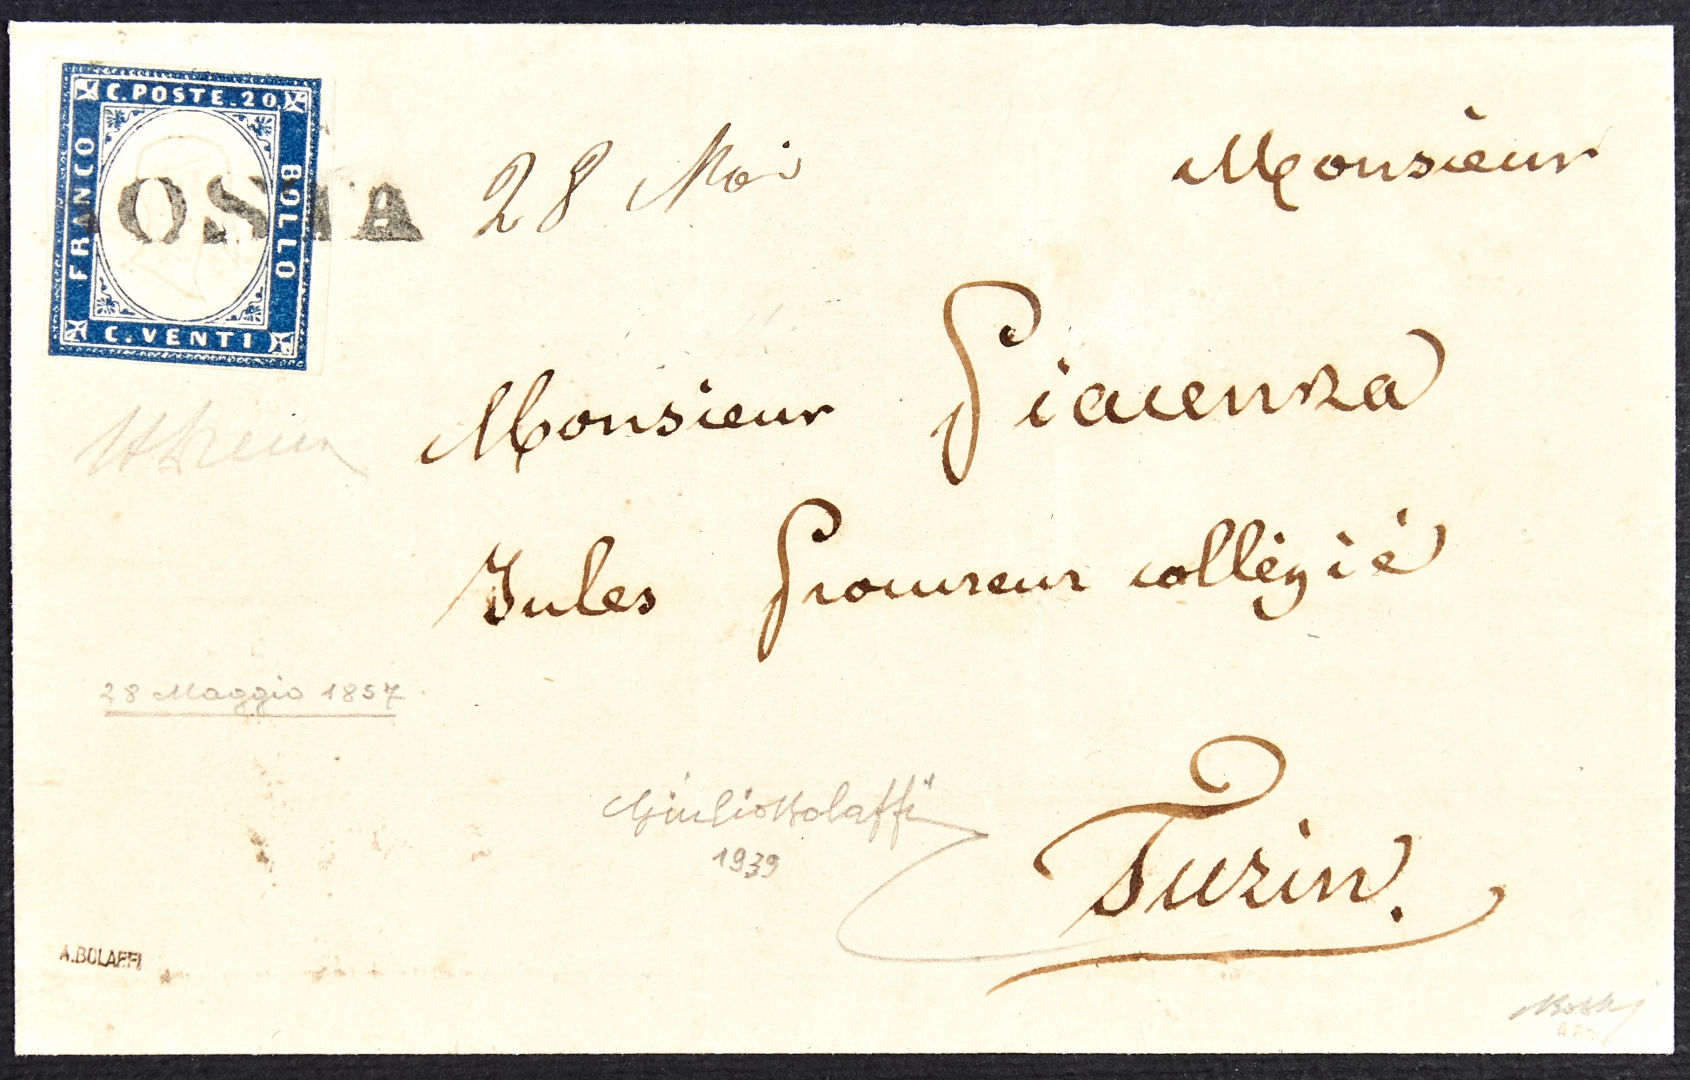 C. POSTE. 20
FRANCO
BOLLO
C. VENTI
OSTA
28 Mai
Monsieur
Monsieur Piacenza
Jules Procureur collégié
Turin.
28 Maggio 1857
Giulio Bolaffi
1939
A. BOLAFFI